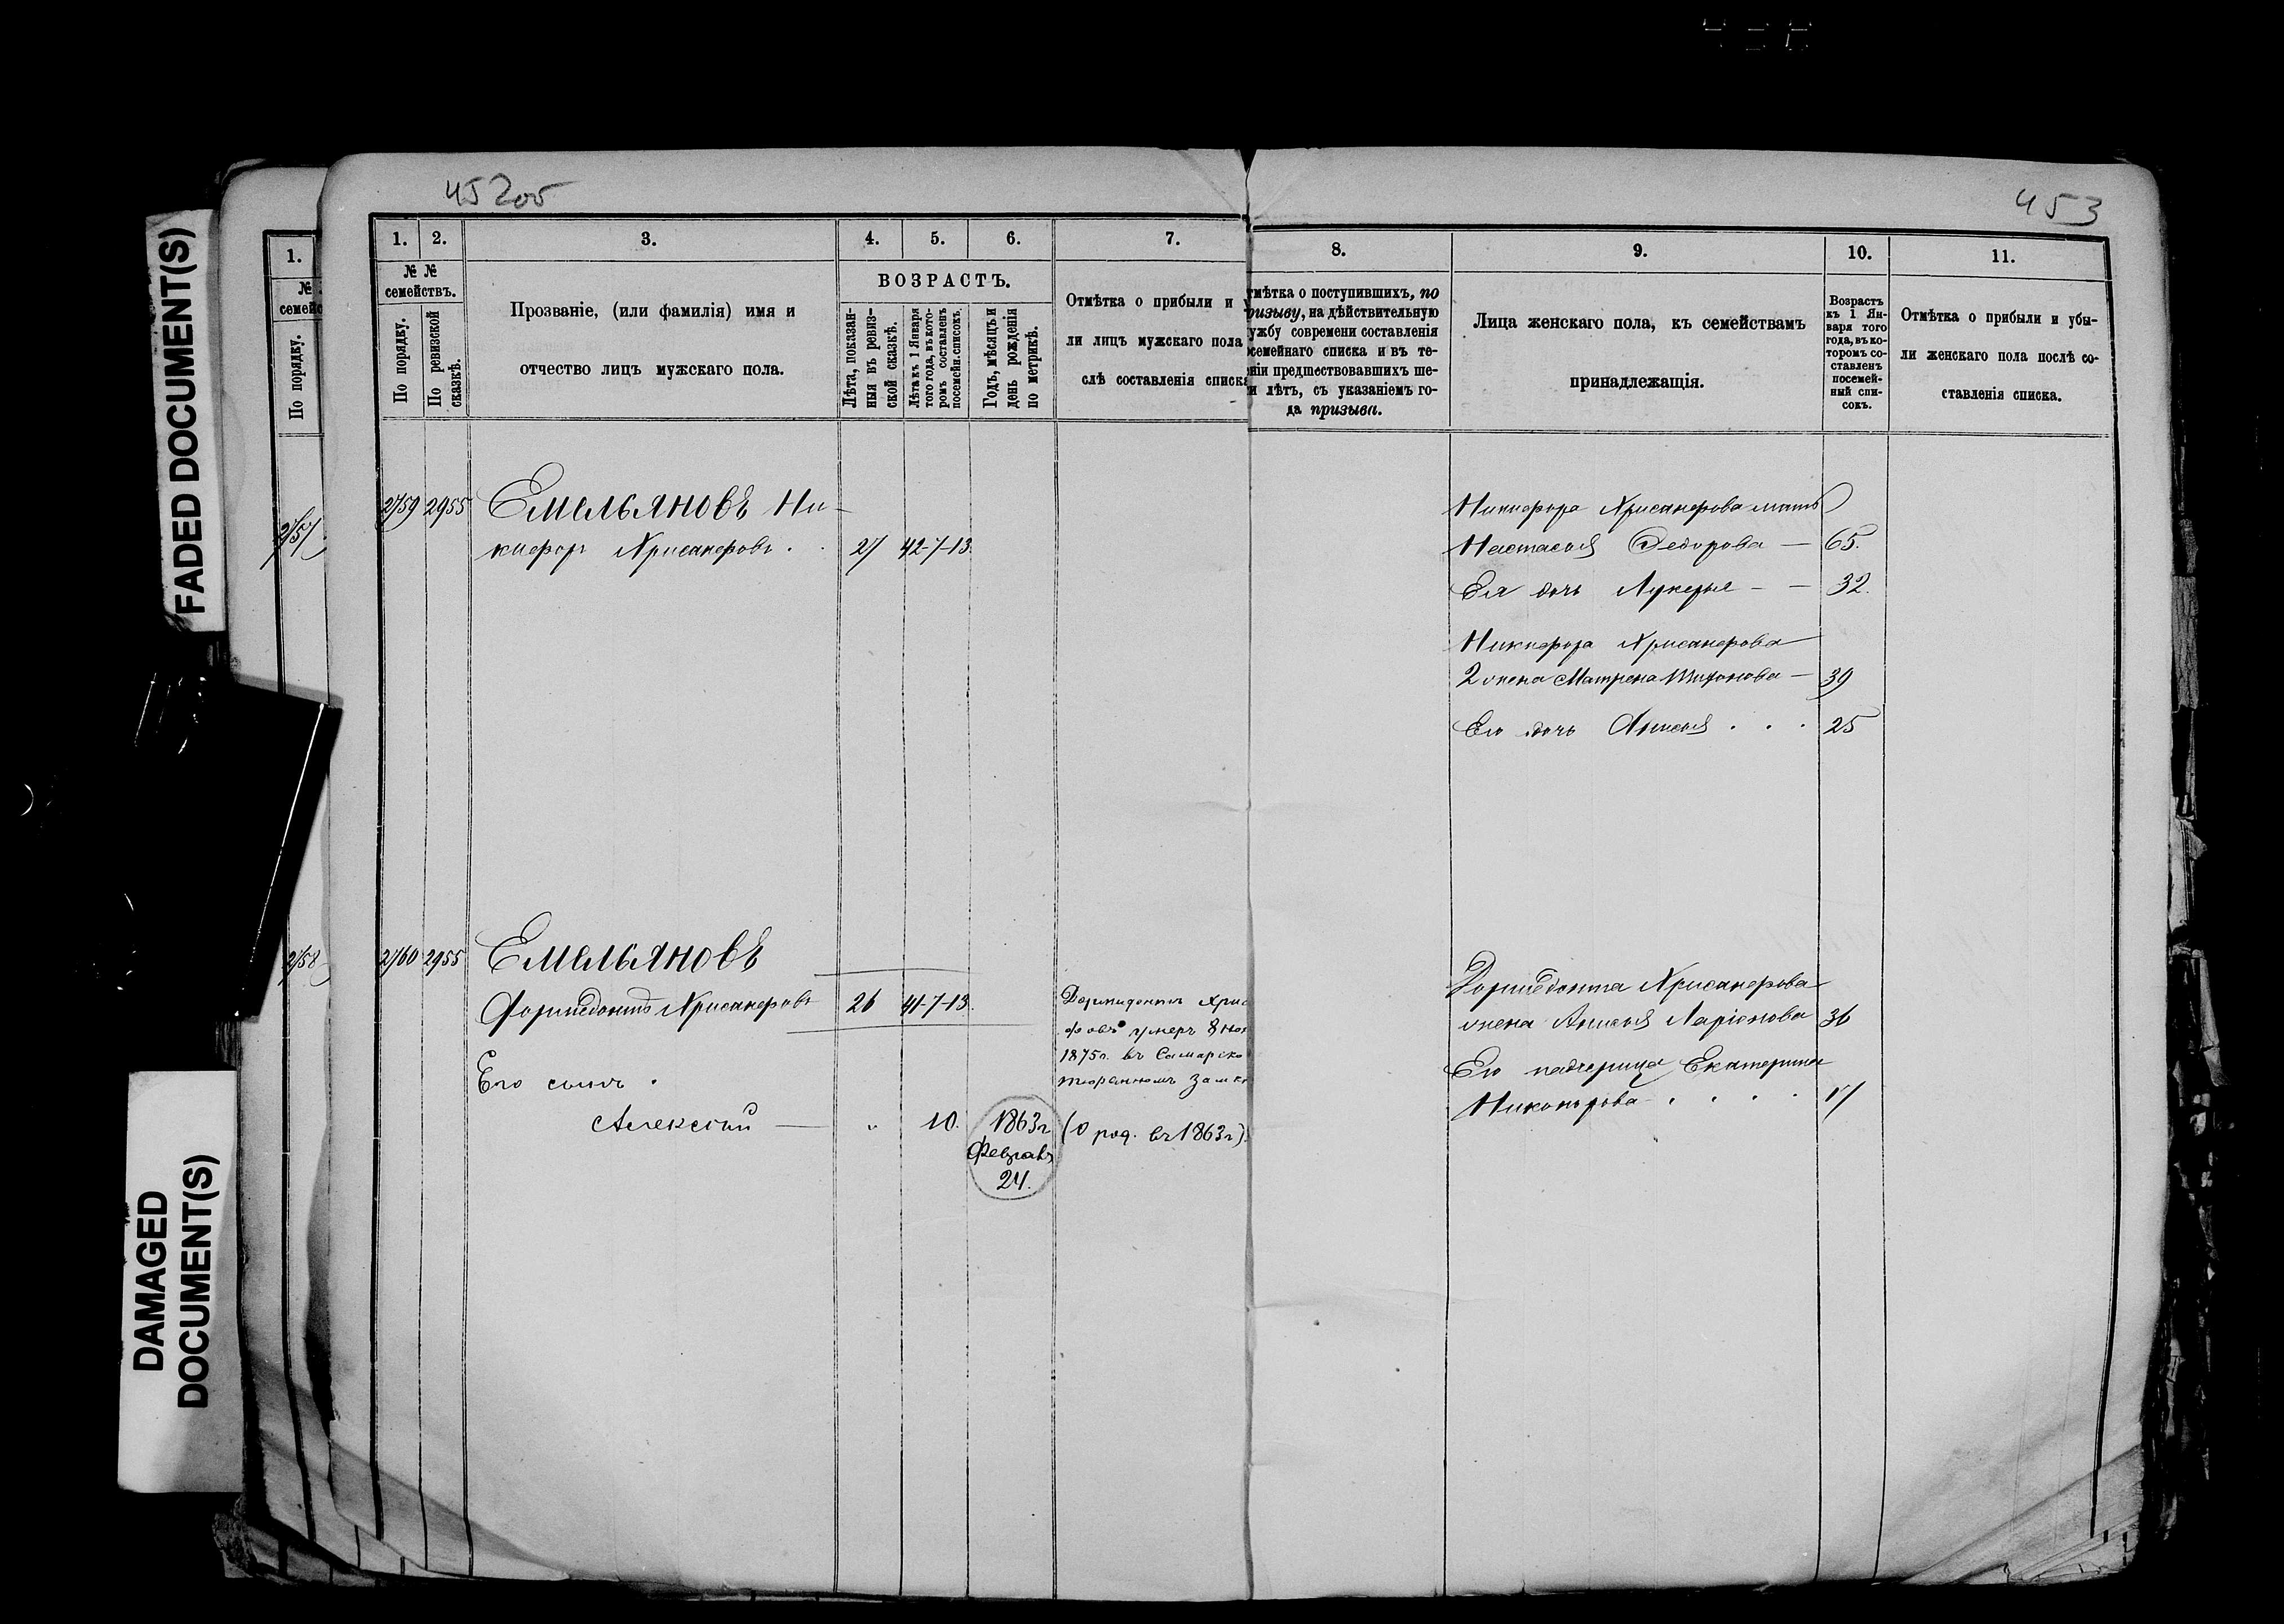 45 2об
453
FADED DOCUMENT(S)
DAMAGED
DOCUMENT(S)
1.
№
семейс
По порядку.
2757
2758
1. 2. 3. 4. 5. 6. 7.
№ №
семействъ.
По порядку.
По ревизской
сказкѣ.
Прозваніе, (или фамилія) имя и
отчество лицъ мужскаго пола.
ВОЗРАСТЪ.
Лѣта, показан-
ныя въ ревиз-
ской сказкѣ.
Лѣта къ 1 Января
того года, въ кото-
ромъ составленъ
посемейн. списокъ.
Годъ, мѣсяцъ и
день рожденія
по метрикѣ.
Отмѣтка о прибыли и у
ли лицъ мужскаго пола
слѣ составленія списка
8. 9. 10. 11.
тмѣтка о поступившихъ, по
ризыву, на дѣйствительную
ужбу современи составленія
осемейнаго списка и въ те-
ніи предшествовавшихъ ше-
и лѣтъ, съ указаніемъ го-
да призыва.
Лица женскаго пола, къ семействамъ
принадлежащія.
Возрастъ
къ 1 Ян-
варя того
года, въ ко-
торомъ со-
ставленъ
посемей-
ный спи-
сокъ.
Отмѣтка о прибыли и убы-
ли женскаго пола послѣ со-
ставленія списка.
2759 2955 Емельяновъ Ни-
кифоръ Хрисанфовъ . . 27 42-7-13.
Никифора Хрисанфова мать
Настасья Федорова — 65.
Ея дочь Лукерья - — 32.
Никифора Хрисанфова
2 жена Матрена Тихонова — 39
Его дочь Анисья . . . 25
2760 2955 Емельяновъ
Формидонтъ Хрисанфовъ 26 41-7-13.
Его сынъ .
Алексѣй — " 10. 1863г
Февраля
24.
Дормидонтъ Хрис
фовъ умеръ 8 ноя
1875г. въ Самарско
тюремномъ замк
(0 род. въ 1863г).
Дормидонта Хрисанфова
жена Анисья Ларіонова 36
Его падчерица Екатерина
Никонорова . . . . 17